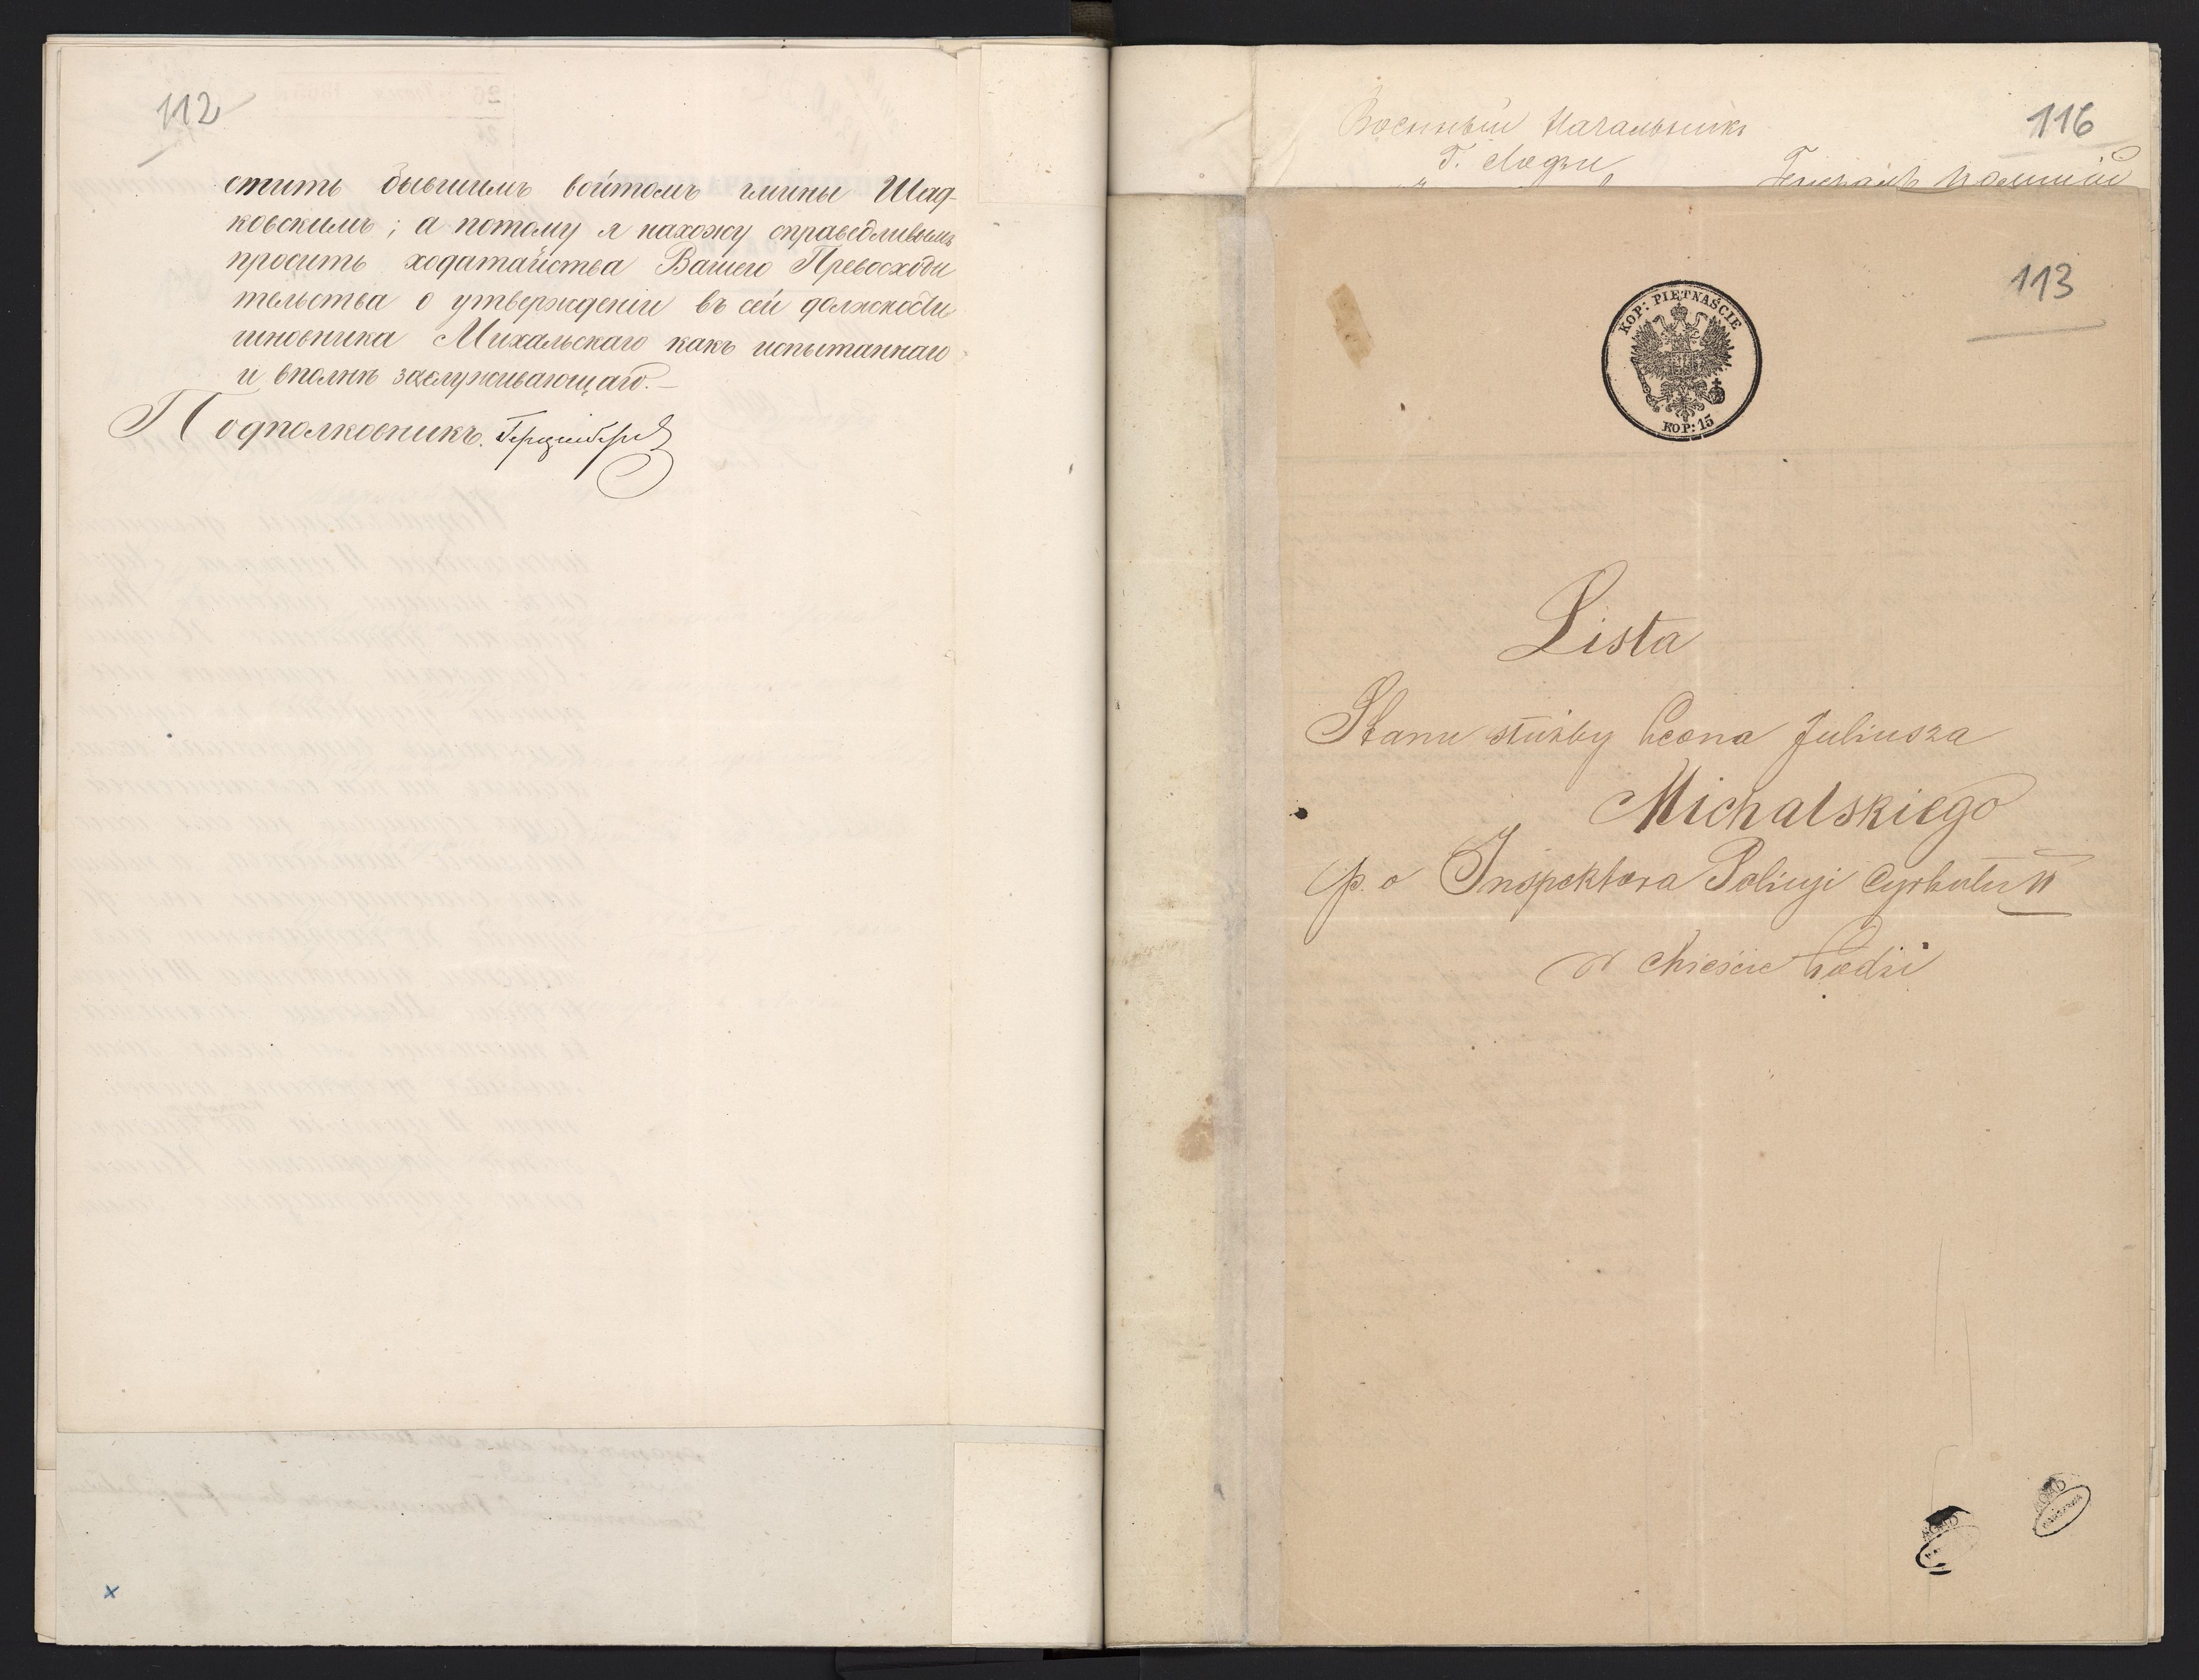 112
стить бывшимъ войтомъ гмины Шад-
ковскимъ; а потому я нахожу справедливымъ
просить ходатайства Вашего Превосходи
тельства о утвержденіи въ сей должности
чиновника Михальскаго какъ испытаннаго
и вполнѣ заслуживающаго.—
Подполковникъ
116
Военный Начальникъ
Г. Лодзи
113
KOP: PIĘTNAŚCIE
KOP: 15
Lista
Stanu służby Leona Juliusza
Michalskiego
p. o Inspektora Policyi Cyrkułu II
w Mieście Łodzi